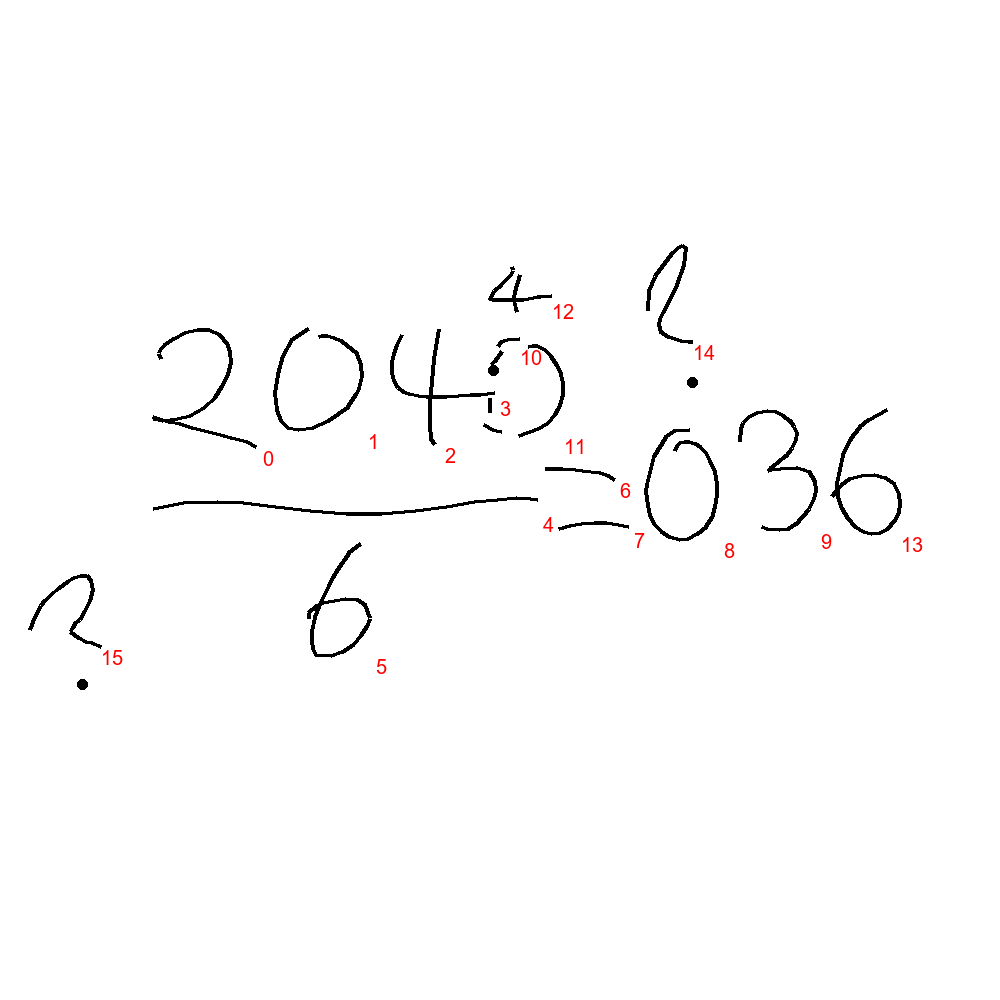 4 ?
2040 = 036
6 ?
0 1 2 3 4 5 6 7 8 9 10 11 12 13 14 15